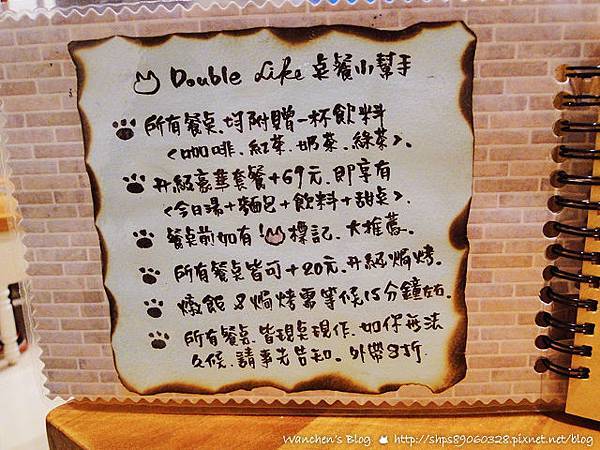 Double Like 桌餐小幫手
所有餐桌.均附贈一杯飲料
<咖啡.紅茶.奶茶.綠茶>.
升級豪華套餐+69元.即享有
<今日湯+麵包+飲料+甜桌>.
餐桌前如有!標記.大推薦.
所有餐桌皆可+20元.升級焗烤.
燉飯&焗烤需等候15分鐘左右.
所有餐桌.皆現桌現作.如你無法
久候.請事先告知.外帶8折.
Wanchen's Blog http://shps89060328.pixnet.net/blog